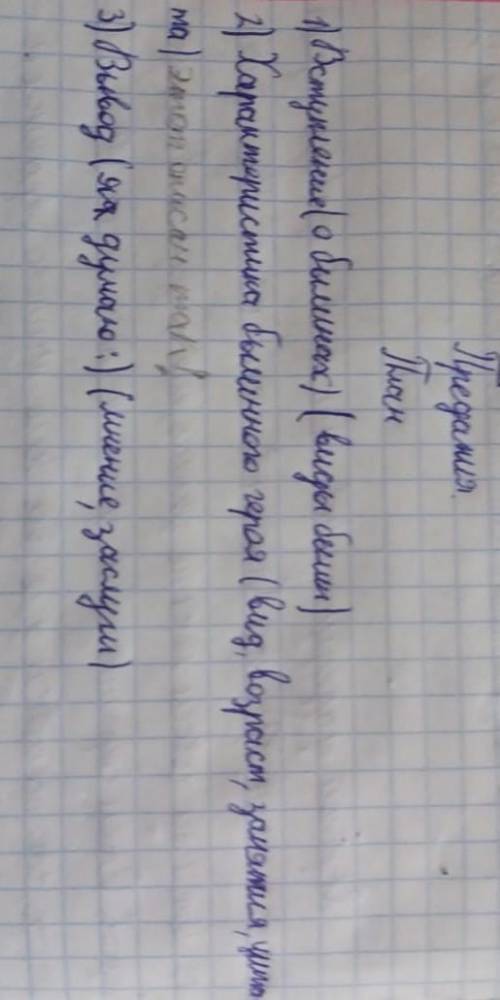 Предания
План
1) Вступление (о былинах) (виды былин)
2) Характеристика былинного героя (вид, возраст, занятия,
3) Вывод (я думаю:) (мнение, заслуги)